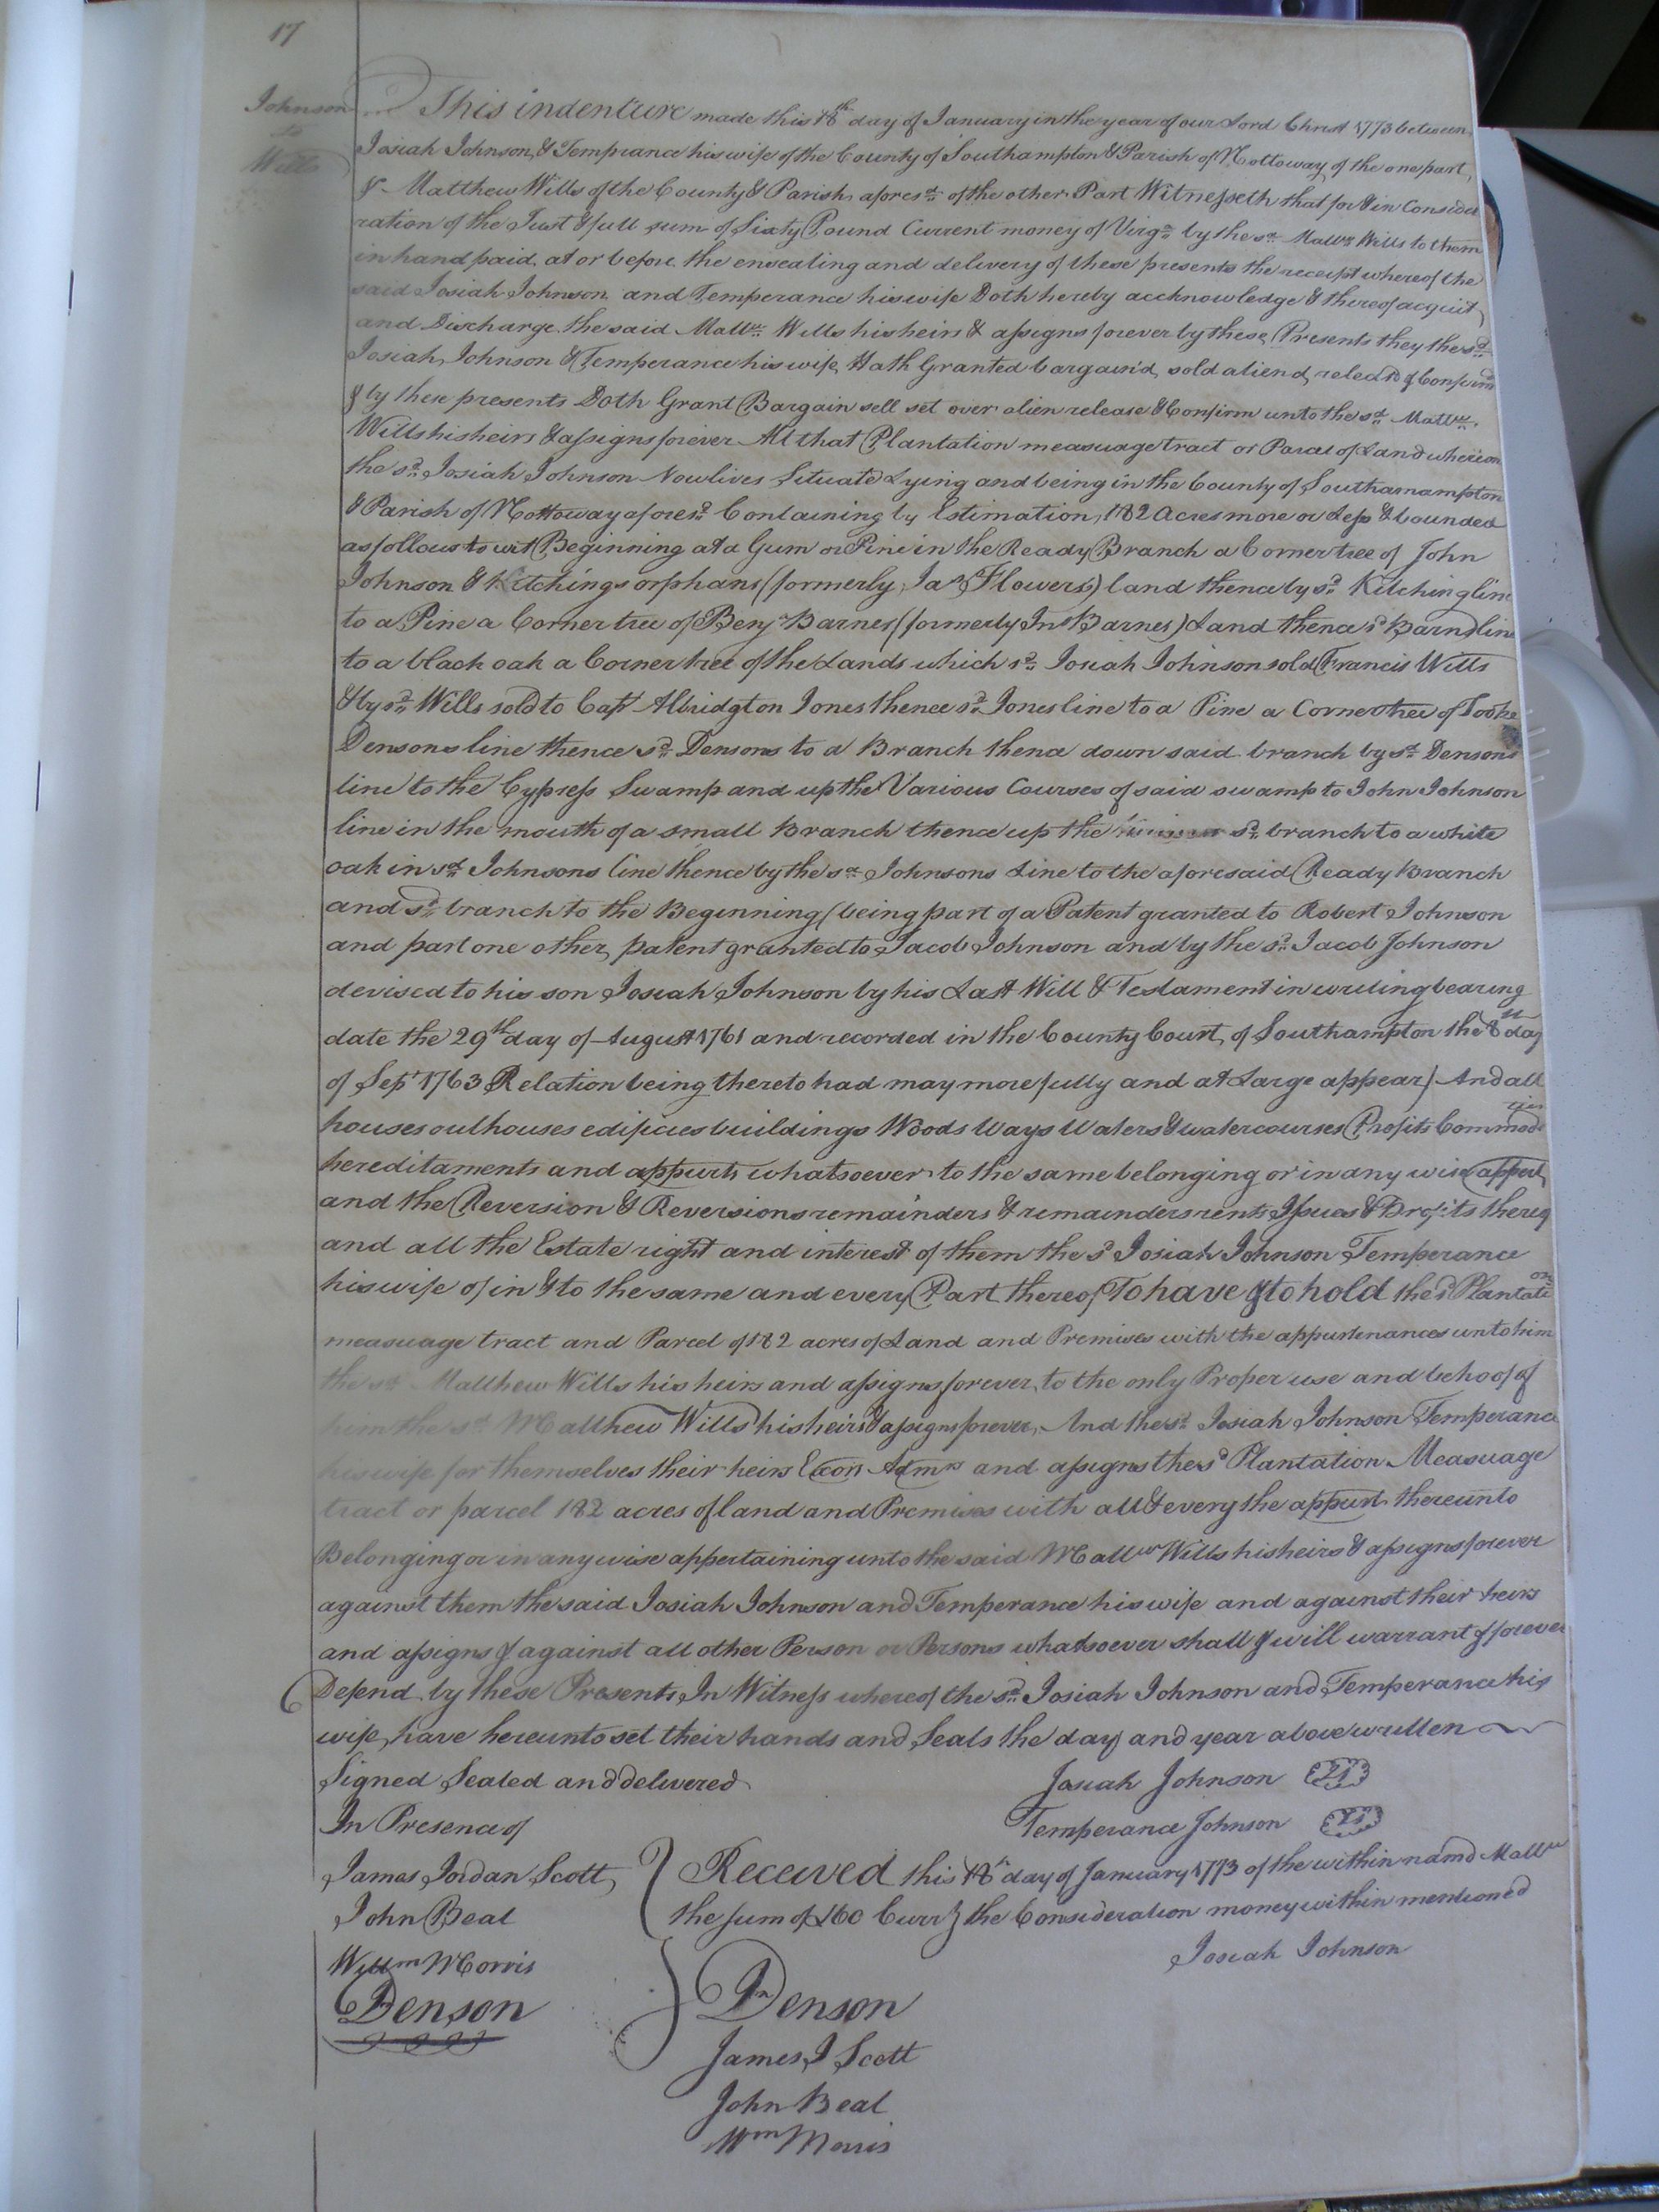 17
Johnson
to
Wills
This indenture made this 18th day of January in the year of our Lord Christ 1773 between
Josiah Johnson & Temprance his wife of the County of Southampton & Parish of Nottoway of the one part,
& Matthew Wills of the County & Parish aforesd. of the other Part Witnesseth that for & in Conside
ration of the Just & full sum of Sixty Pound Current money of Virga. by the sd. Mattw. Wills to them
in hand paid at or before the ensealing and delivery of these presents the receipt whereof the
said Josiah Johnson and Temperance his wife Doth hereby accknowledge & thereof acquit
and Discharge the said Mattw. Wills his heirs & assigns forever by these Presents they the sd.
Josiah Johnson & Temperance his wife Hath Granted bargain'd sold aliend releasd & Confirmd
& by these presents Doth Grant Bargain sell set over alien release & Confirm unto the sd. Mattw.
Wills his heirs & assigns forever All that Plantation measuage tract or Parcel of Land wherion
the sd. Josiah Johnson Now lives Situate Lying and being in the County of Southamampton
& Parish of Nottoway aforesd. Containing by Estimation, 182 Acres more or Less & bounded
as follows to wit Beginning at a Gum or Pine in the Ready Branch a Corner tree of John
Johnson & Kitchings orphans (formerly Jas. Flowers) land thence by sd. Kitching line
to a Pine a Corner tree of Benjn Barnes (formerly Jno Barnes) Land thence sd Barns line
to a black oak a Corner tree of the Lands which sd. Josiah Johnson sold Francis Wills
& by sd. Wills sold to Capt Albridgton Jones thence sd. Jones line to a Pine a Corner tree of Tooke
Densons line thence sd. Densons to a Branch thence down said branch by sd. Densons
line to the Cypress Swamp and up the Various Courses of said swamp to John Johnson
line in the mouth of a small Branch thence up the sd. branch to a white
oak in sd. Johnsons line thence by the sd. Johnsons Line to the aforesaid Ready Branch
and sd. branch to the Beginning (being part of a Patent granted to Robert Johnson
and part one other patent granted to Jacob Johnson and by the sd. Jacob Johnson
devised to his son Josiah Johnson by his Last Will & Testament in writing bearing
date the 29th day of August 1761 and recorded in the County Court of Southampton the 8th day
of Sept 1763 Relation being thereto had may more fully and at Large appear) And all
houses outhouses edificies buildings Woods Ways Waters & watercourses Profits Commodities
hereditaments and appurts whatsoever to the same belonging or in any wise appert
and the Reversion & Reversions remainders & remainders rents Issues & Profits thereof
and all the Estate right and interest of them the sd Josiah Johnson Temperance
his wife of in & to the same and every Part thereof To have & to hold the sd Plantation
measuage tract and Parcel of 182 acres of Land and Premises with the appurtenances unto him
the sd. Matthew Wills his heirs and assigns forever, to the only Proper use and behoof of
him the sd. Matthew Wills his heirs & assigns forever, And the sd. Josiah Johnson Temperance
his wife for themselves their heirs Exors Admrs and assigns the sd Plantation Measuage
tract or parcel 182 acres of land and Premises with all & every the appurts thereunto
Belonging or in any wise appertaining unto the said Mattw Wills his heirs & assigns forever
against them the said Josiah Johnson and Temperance his wife and against their heirs
and assigns & against all other Person or Persons whatsoever shall & will warrant & forever
Defend by these Presents In Witness whereof the sd. Josiah Johnson and Temperance his
wife, have hereunto set their hands and Seals the day and year above written
Signed Sealed and delivered
Josiah Johnson Ls
In Presence of
Temperance Johnson Ls
James Jordan Scott
Received this 18th day of January 1773 of the within namd Mattw
John Beal
the sum of £60 Curry the Consideration money within mentioned
Josiah Johnson
Willm Morris
Denson
Jn Denson
James J Scott
John Beal
Wm Morris